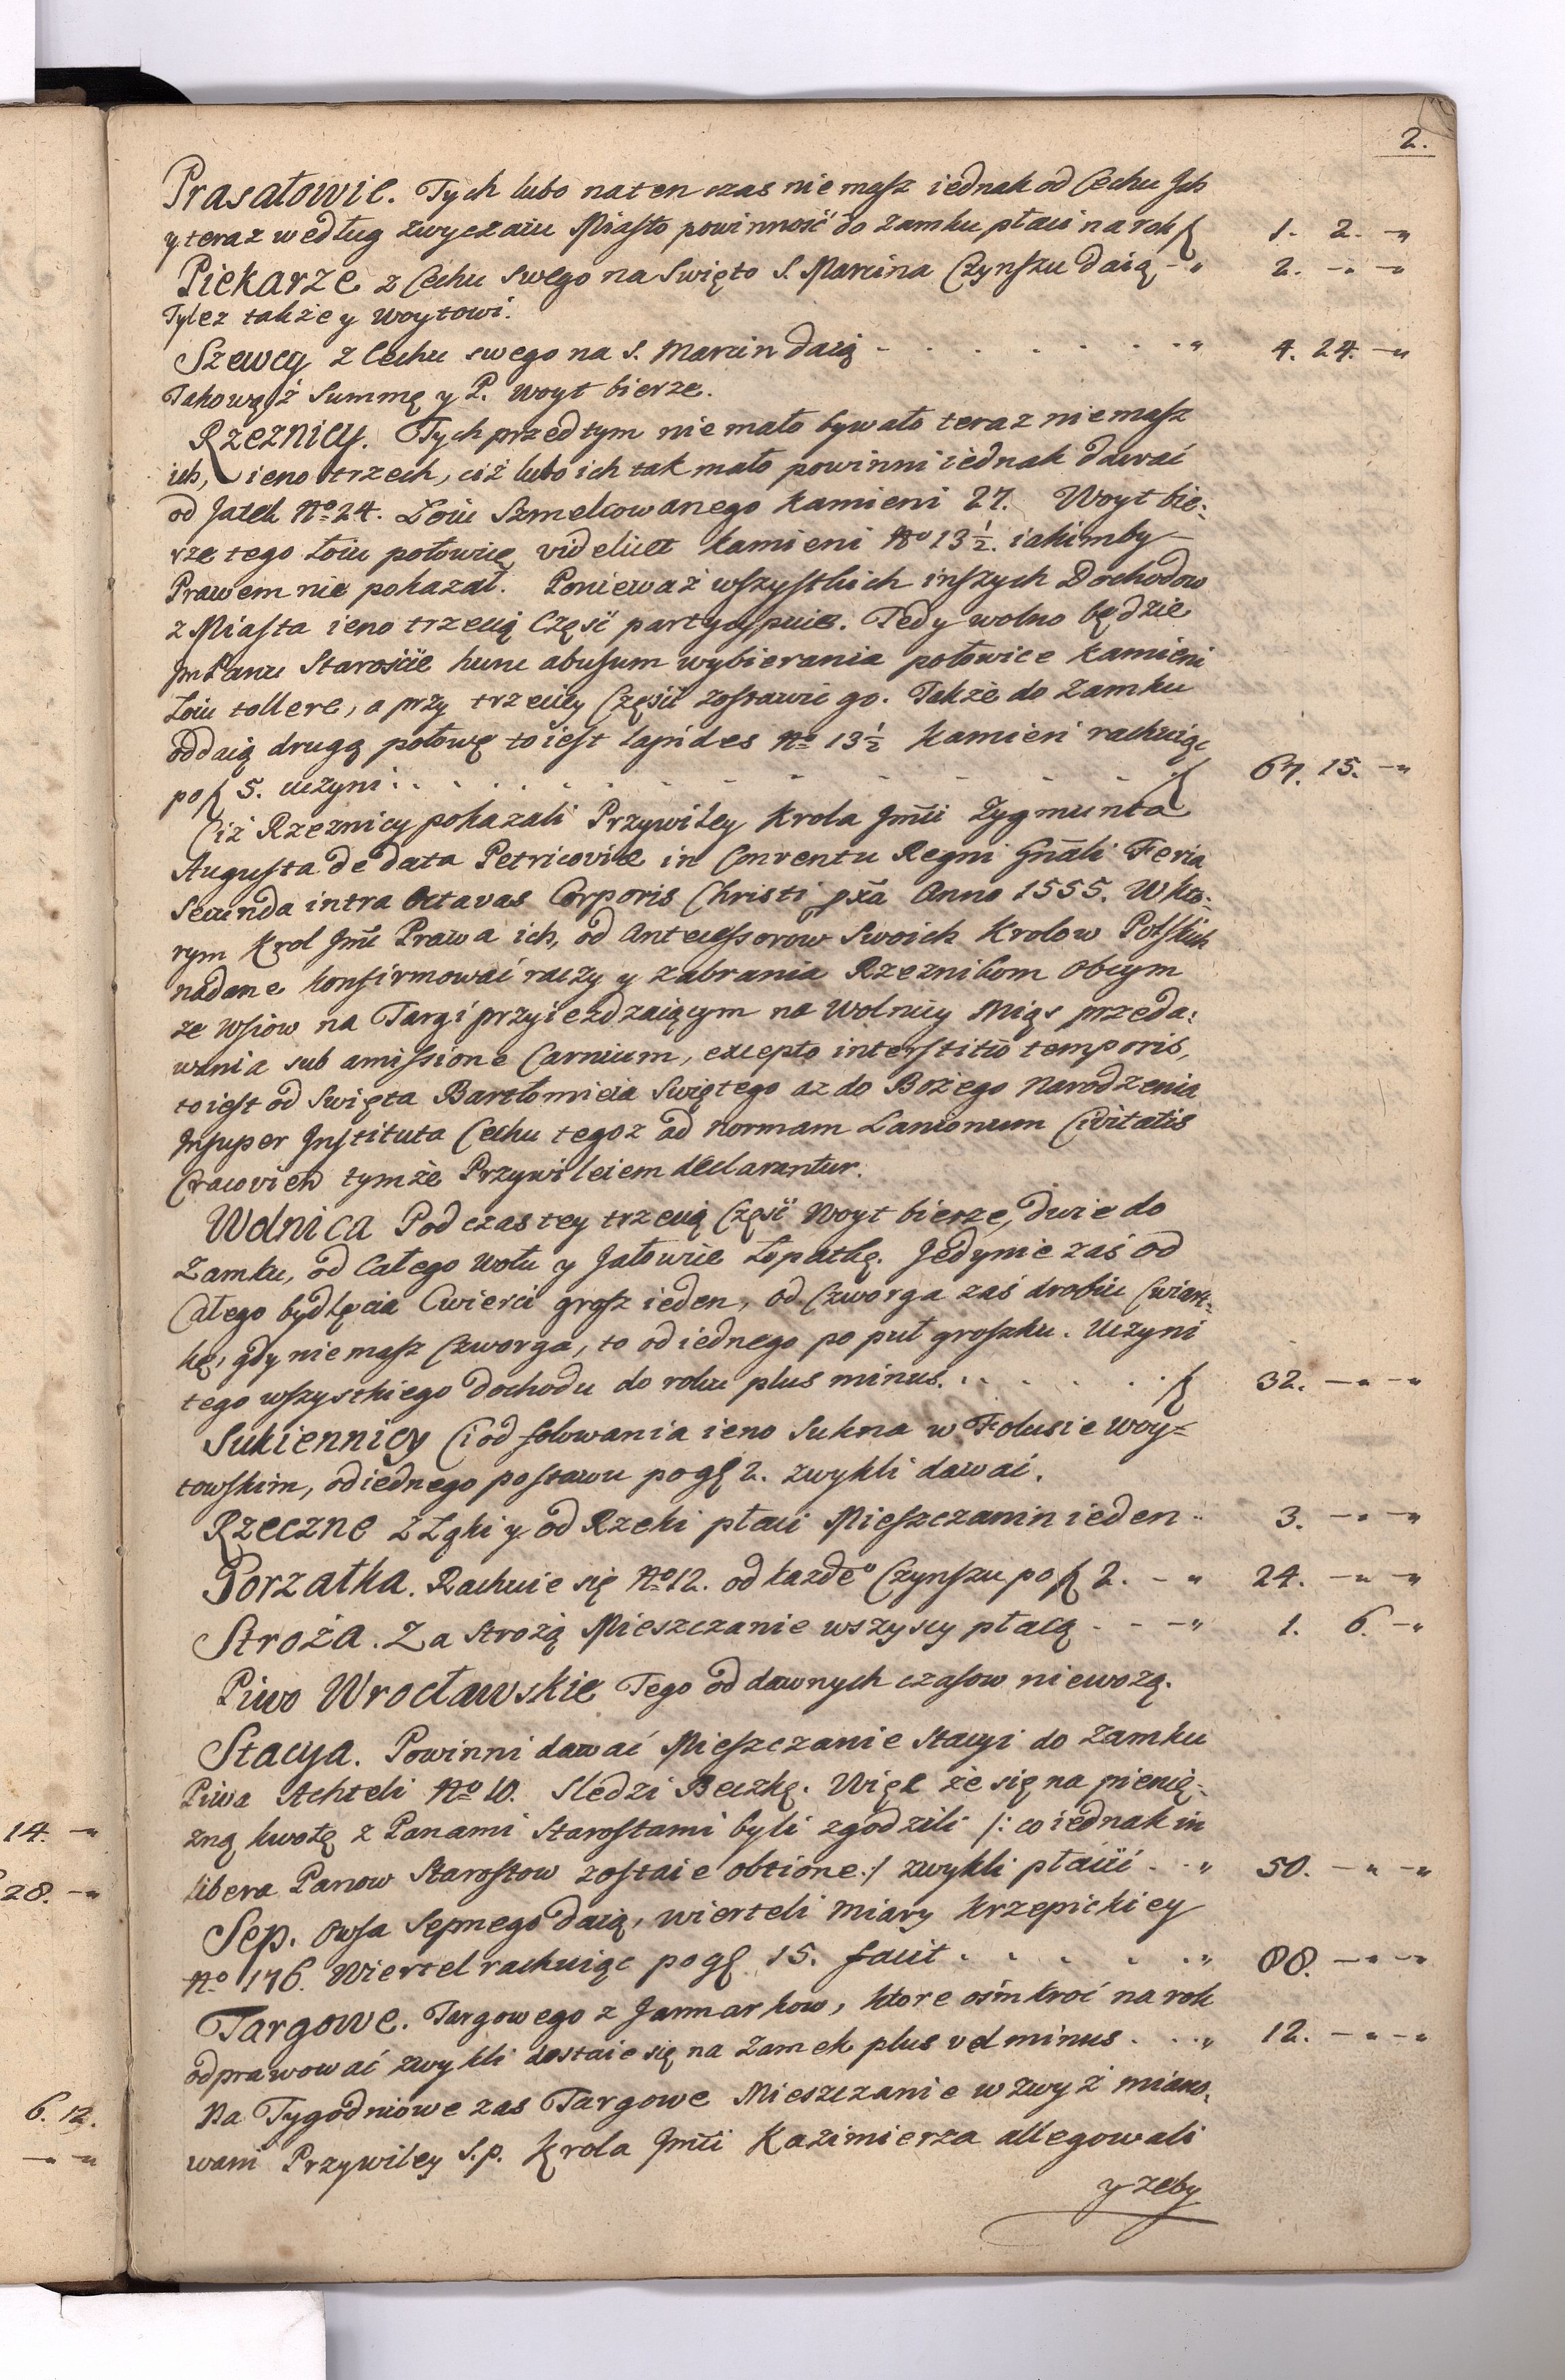 2.
Prasałowie. Tych lubo na ten czas nie masz iednak od Cechu Ich
y teraz według zwyczaiu Miasto powinność do Zamku płaci na rok ƒ 1. 2. -"
Piekarze z Cechu swego na Swięto S. Marcina Czynszu daią -" 2. -" -"
Tylez także y Woytowi.
Szewcy z Cechu swego na S. Marcin daią - . . . . . . " 4. 24. -"
Takowąż Summę y P. Woyt bierze.
Rzeznicy. Tych przedtym nie mało bywało teraz nie masz
ich, ieno trzech, ciż lubo ich tak mało powinni iednak dawać
od Jatek No 24. Łoiu Szmelcowanego Kamieni 27. Woyt bie:
rze tego Łoiu połowicę videlicet Kamieni No 13 1/2. iakimby
Prawem nie pokazał. Ponieważ wszystkich inszych Dochodow
z Miasta ieno trzecią Część partycypuie. Tedy wolno będzie
Jm Panu Starościie hunc abusum wybierania połowice Kamieni
Łoiu tollere, a przy trzeciey Części zostawić go. Także do Zamku
oddaią drugą połowę to iest lapides No 13 1/2 Kamieni rachuiąc
po ƒ 5. uczyni . . . . . . . . . ƒ 67. 15. -"
Ciż Rzeznicy pokazali Przywiley Krola Jmći Zygmunta
Augusta de data Petricoviæ in Conventu Regni Gnāli Feria
Secunda intra Octavas Corporis Christi pxa Anno 1555. W kto:
rym Krol Jmć Prawa ich, od Antecessorow Swoich Krolow Polskich
nadane konfirmować raczy y zabrania Rzeznikom Obcym
ze Wsiow na Targi przyiezdzaiącym na Wolnicy Mięs przeda:
wania sub amissione Carnium, excepto interstitio temporis,
to iest od Swięta Bartłomieia Swiętego az do Bożego Narodzenia
Insuper Instituta Cechu tegoz ad normam Lanionum Civitatis
Cracovien tymże Przywileiem declarantur.
Wolnica Pod czas tey trzecią Część Woyt bierze, dwie do
Zamku, od Całego Wołu y Jałowie Łopatkę. Jedynie zaś od
Całego bydlęcia Cwierci grosz ieden, od Czworga zaś drobiu Cwiart:
kę, gdy nie masz Czworga, to od iednego po puł groszku. Uczyni
tego wszystkiego dochodu do roku plus minus. . . . . . ƒ 32. -" -"
Sukiennicy Ci od folowania ieno Sukna w Folusie Woy=
towskim, od iednego postawu po gƒ 2. zwykli dawać.
Rzeczne Z Łąki y od Rzeki płaci Mieszczanin ieden " 3. -" -"
Gorzałka. Rachuie się No 12. od każdeo Czynszu po ƒ 2. - " 24. -" -"
Stroża. Za Strożą Mieszczanie wszyscy płacą - - -" 1. 6. -"
Piwo Wrocławskie Tego od dawnych czasow nie wożą.
Stacya. Powinni dawać Mieszczanie Stacyi do Zamku
Piwa Achteli No 10. Sledzi Beczkę. Więc że się na pienię:
zną kwotę z Panami Starostami byli zgodzili /: co iednak in
libera Panow Starostow zostaie obtione :/ zwykli płacić . . " 50. -" -"
Sep. Owsa Sepnego daią, wierteli miary Krzepickiey
No 176. Wiertel rachuiąc po gƒ 15. facit . . . . . " 88. -" -"
Targowe. Targowego z Jarmarkow, ktore ośmkroć na rok
odprawować zwykli dostaie się na Zamek plus vel minus . . " 12. -" -"
Na Tygodniowe zas Targowe Mieszczanie w zwyż miano:
wani Przywiley S.p. Krola Jmći Kazimierza allegowali
y zeby
14. -"
28. -"
6. 12.
-" -"